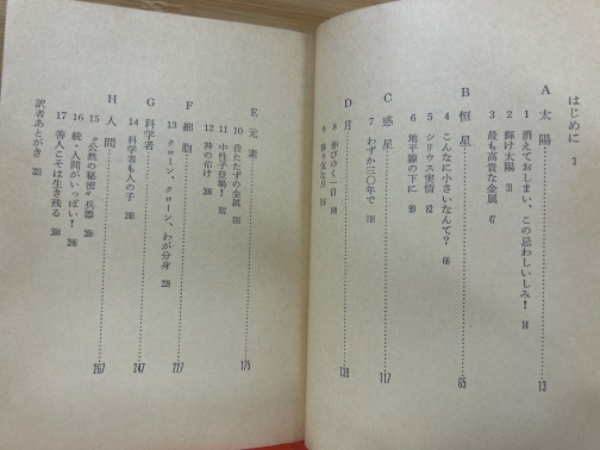 はじめに 3
A 太陽……13
1 消えておしまい、この忌わしいしみ! 14
2 輝け太陽 31
3 最も高貴な金属 47
B 恒星……65
4 こんなに小さいなんて? 66
5 シリウス実情 82
6 地平線の下に 99
C 惑星……117
7 わずか三〇年で 118
D 月……139
8 伸びゆく一日 140
E 元素……175
10 役たたずの金属
11 中性子登場!
12 神の佑け
F 細胞……227
13 クローン、クローン、わが分身 228
G 科学者……247
14 科学者も人の子 248
H 人間……267
15 “公然の秘密”兵器 268
16 続・人間がいっぱい! 286
17 善人こそは生き残る 304
訳者あとがき 321